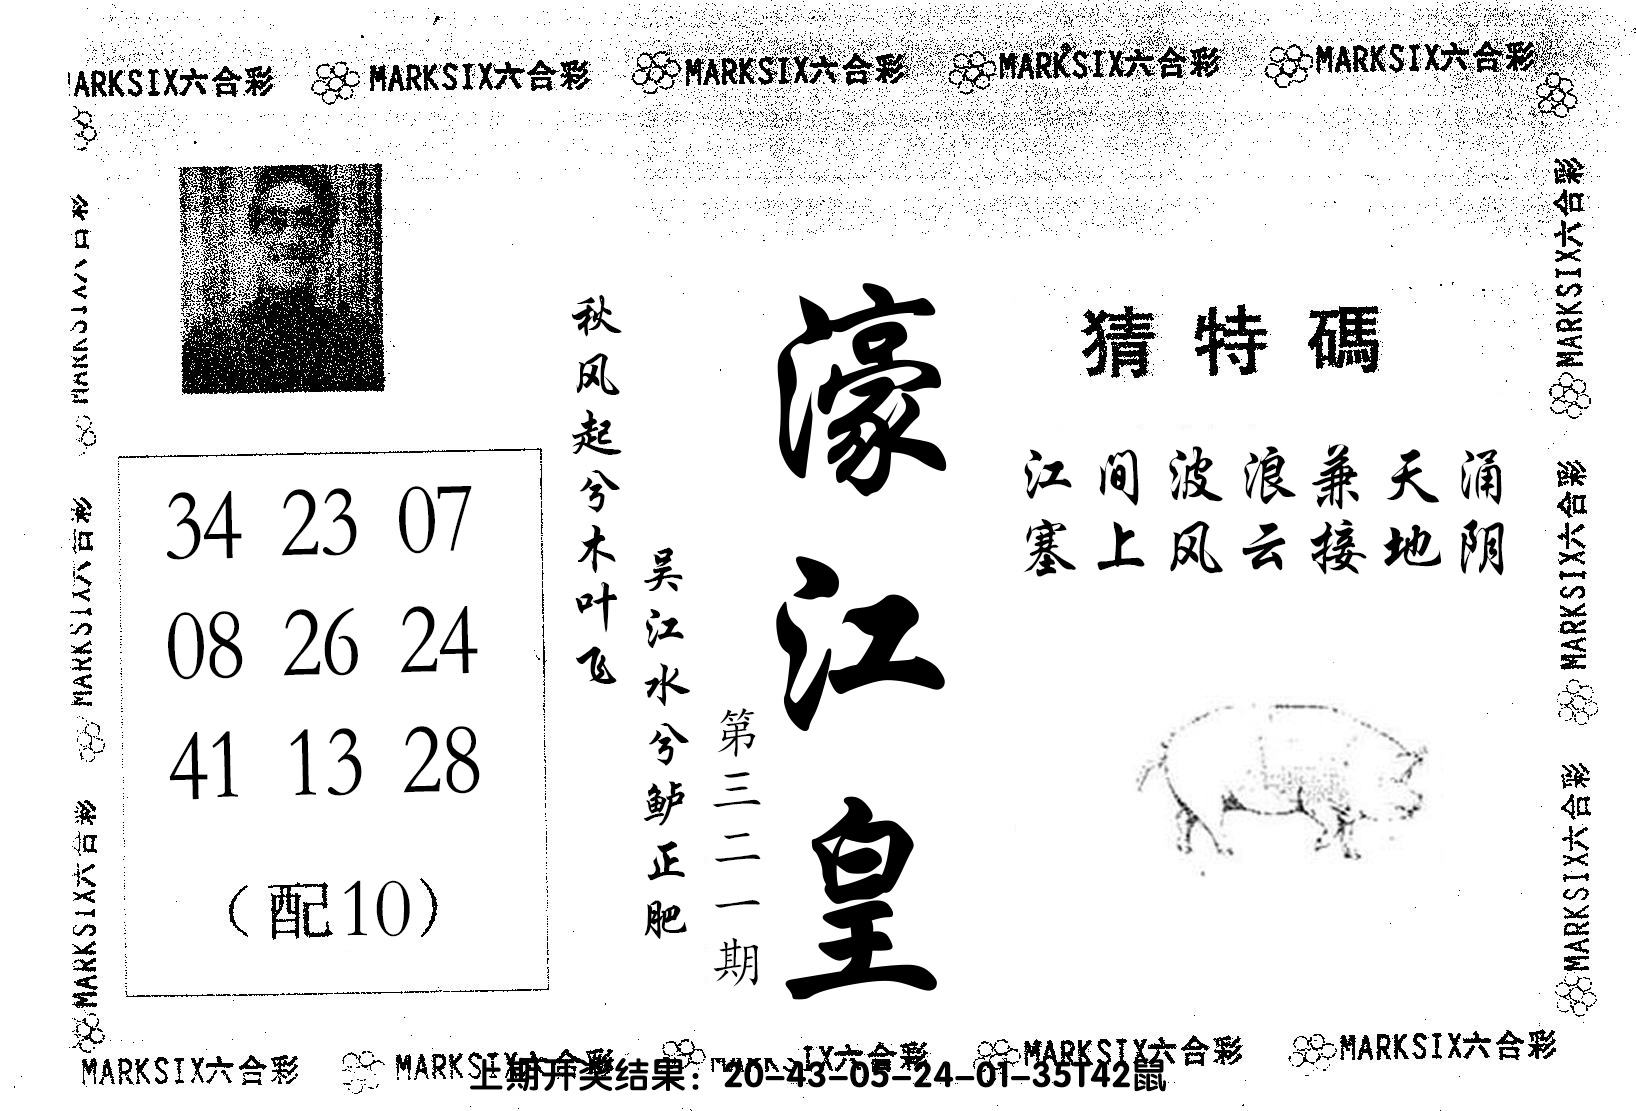 MARKSIX六合彩 MARKSIX六合彩 MARKSIX六合彩 MARKSIX六合彩 MARKSIX六合彩
猜特碼
江间波浪兼天涌
塞上风云接地阴
濠江皇
第三二一期
秋风起兮木叶飞
吴江水兮鲈正肥
34 23 07
08 26 24
41 13 28
（配10）
MARKSIX六合彩
MARKSIX六合彩
MARKSIX六合彩
MARKSIX六合彩
MARKSIX六合彩
MARKSIX六合彩
MARKSIX六合彩 MARKSIX六合彩 MARKSIX六合彩 MARKSIX六合彩 MARKSIX六合彩
上期开奖结果：20-43-05-24-01-35T42鼠